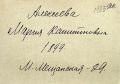 Алексеева
Мария Капитоновна
1899
М. Мещанская - 29.